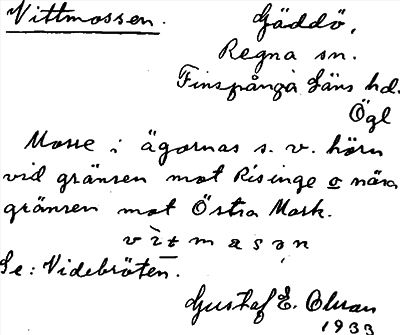 Vittmossen.
Gäddö,
Regna sn.
Finspånga läns hd.
Ögl
Mosse i ägornas s. v. hörn
vid gränsen mot Risinge o nära
gränsen mot Östra Mark.
vìtmasən
Se: Videbråten.
Gustaf E. Olsson
1933